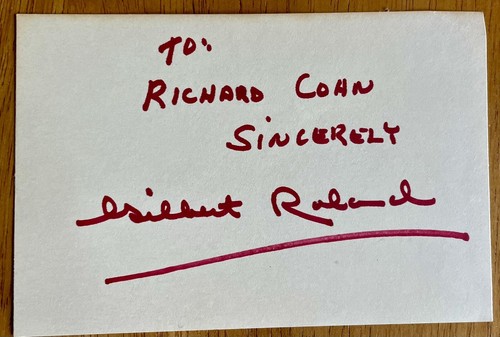 TO:
RICHARD COHN
SINCERELY
Gilbert Roland